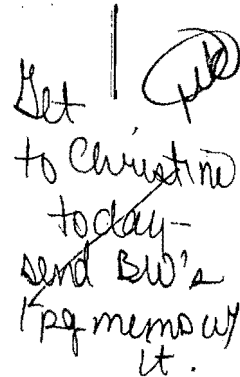 Get
to Christine
today-
send BW's
1 pg memo w/
it.